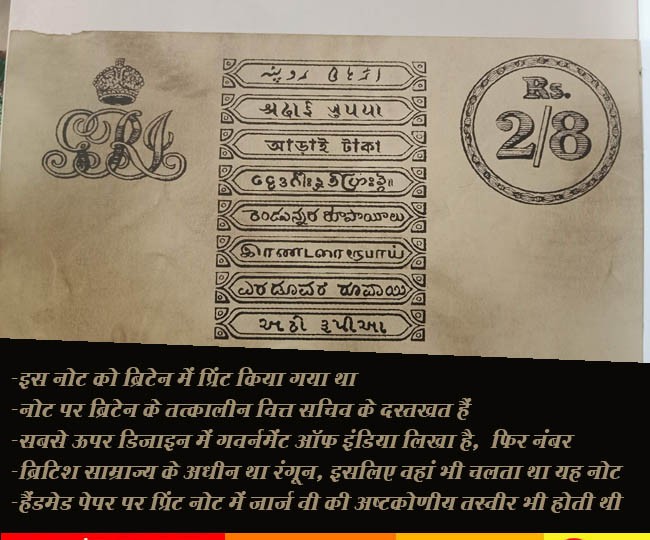 GRI
اڑھائی روپیہ
अढाई रुपया
আড়াই টাকা
రెండున్నర రూపాయీలు
இரண்டரை ரூபாய்
ಎರಡೂವರೆ ರೂಪಾಯಿ
અઢી રૂપીઆ
Rs.
2/8
-इस नोट को ब्रिटेन में प्रिंट किया गया था
-नोट पर ब्रिटेन के तत्कालीन वित्त सचिव के दस्तखत हैं
-सबसे ऊपर डिजाइन में गवर्नमेंट ऑफ इंडिया लिखा है, फिर नंबर
-ब्रिटिश साम्राज्य के अधीन था रंगून, इसलिए वहां भी चलता था यह नोट
-हैंडमेड पेपर पर प्रिंट नोट में जार्ज वी की अष्टकोणीय तस्वीर भी होती थी